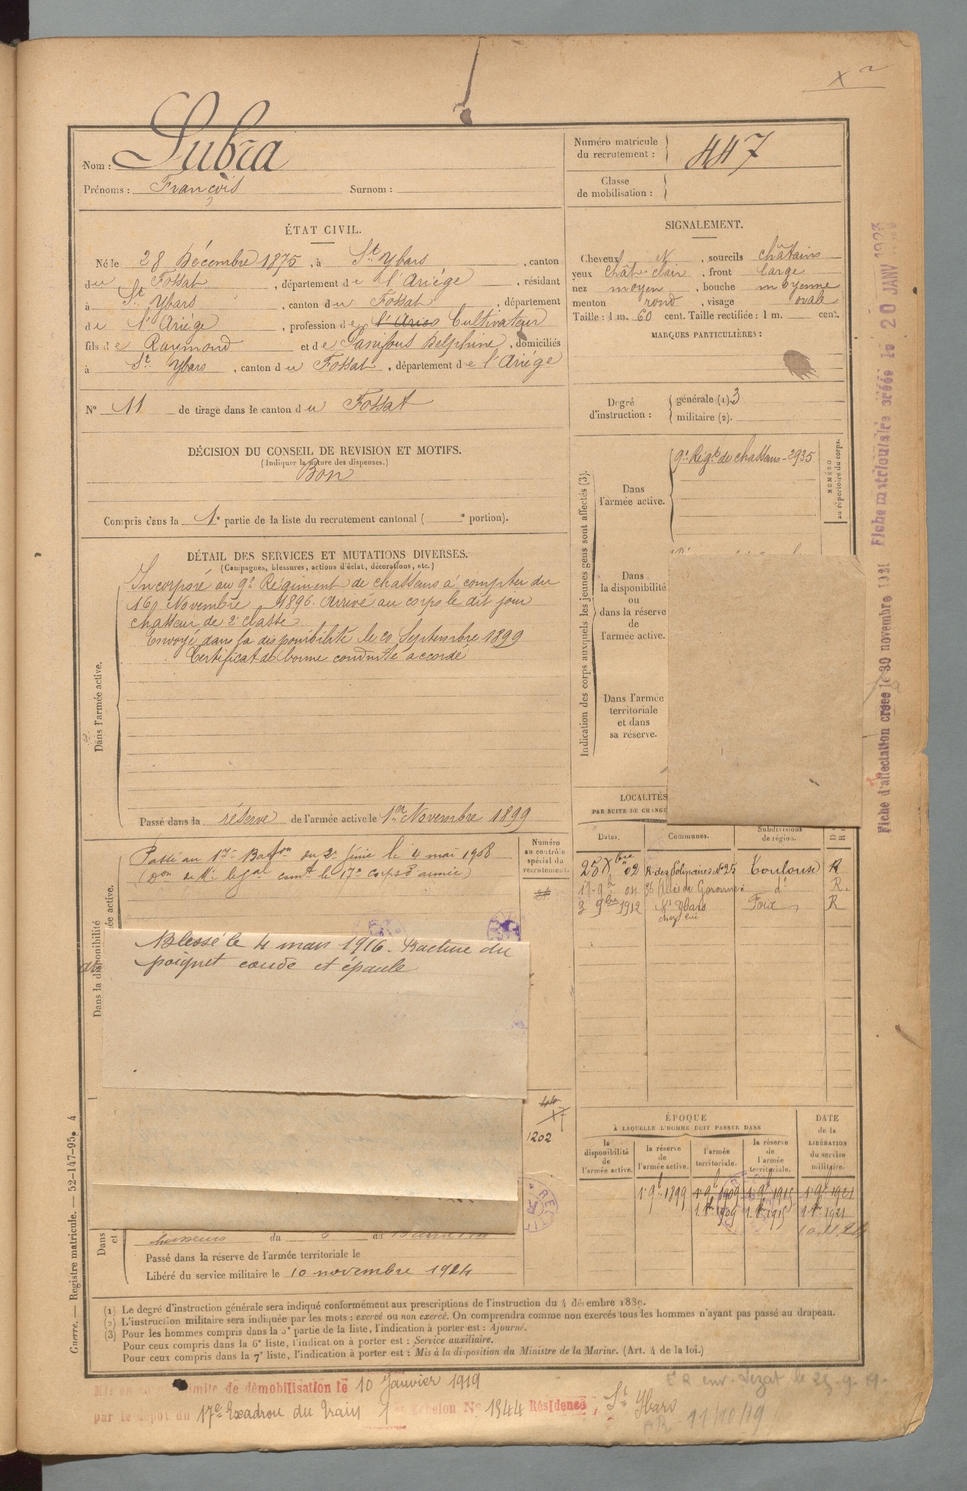 Nom : Lubra
Prénoms : François Surnom :
Numéro matricule du recrutement : 447
Classe de mobilisation :
ÉTAT CIVIL.
Né le 28 Décembre 1875, à St Ybars, canton
du Fossat, département de l'Ariége, résidant
à St Ybars, canton du Fossat, département
de l'Ariége, profession de Cultivateur
fils de Raymond et de Delphine, domiciliés
à St Ybars, canton du Fossat, département de l'Ariége
No 11 de tirage dans le canton du Fossat
DÉCISION DU CONSEIL DE REVISION ET MOTIFS.
(Indiquer la nature des dispenses.)
Bon
Compris dans la 1e partie de la liste du recrutement cantonal ( e portion).
DÉTAIL DES SERVICES ET MUTATIONS DIVERSES.
(Campagnes, blessures, actions d'éclat, décorations, etc.)
Dans l'armée active.
Incorporé au 9e Régiment de chasseurs à compter du
16 Novembre 1896. Arrivé au corps le dit jour
chasseur de 2e classe
Envoyé dans la disponibilité le 20 Septembre 1899
Certificat de bonne conduite accordé
Passé dans la réserve de l'armée active le 1er Novembre 1899
Dans la disponibilité
Passé au 17e Baton du 2e Génie le 4 mai 1908
(Don de Mr le Gal comt le 17e corps d'armée)
Blessé le 4 mars 1916. Fracture du
poignet coude et épaule
Numéro au contrôle spécial du recrutement.
1202
Passé dans la réserve de l'armée territoriale le
Libéré du service militaire le 10 novembre 1924
SIGNALEMENT.
Cheveux N, sourcils châtains
yeux chât-clair, front large
nez moyen, bouche moyenne
menton rond, visage ovale
Taille : 1 m. 60 cent. Taille rectifiée : 1 m. cent.
MARQUES PARTICULIÈRES :
Degré d'instruction : générale (1). 3
militaire (2).
Indication des corps auxquels les jeunes gens sont affectés (3).
Dans l'armée active.
9e Regt de chasseurs - 2935
NUMÉRO au répertoire du corps.
Dans la disponibilité ou dans la réserve de l'armée active.
Dans l'armée territoriale et dans sa réserve.
LOCALITÉS
Dates. Communes. Subdivisions de région.
25 Xbre 02 R. des Polinaires No 25 Toulouse R
Allées de Garonne d° R.
3 9bre 1912 St Ybars Foix R
ÉPOQUE
À LAQUELLE L'HOMME DOIT PASSER DANS
la disponibilité de l'armée active.
la réserve de l'armée active.
l'armée territoriale.
la réserve de l'armée territoriale.
DATE de la LIBÉRATION du service militaire.
(1) Le degré d'instruction générale sera indiqué conformément aux prescriptions de l'instruction du 4 décembre 1889.
(2) L'instruction militaire sera indiquée par les mots : exercé ou non exercé. On comprendra comme non exercés tous les hommes n'ayant pas passé au drapeau.
(3) Pour les hommes compris dans la 5e partie de la liste, l'indication à porter est : Ajourné.
Pour ceux compris dans la 6e liste, l'indication à porter est : Service auxiliaire.
Pour ceux compris dans la 7e liste, l'indication à porter est : Mis à la disposition du Ministre de la Marine. (Art. 4 de la loi.)
Guerre. — Registre matricule. — 52-147-95. 4
de démobilisation le 10 Janvier 1919
par le dépôt du 17e Escadron du Train Echelon No 1344 Résidence, St Ybars
11/10/19
Fiche d'affectation créée le 30 novembre 1921 Fiche matriculaire créée le 20 JANV 1923